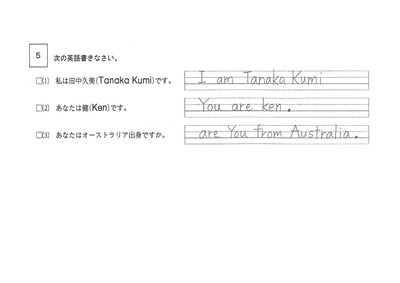 5 次の英語書きなさい。
□(1) 私は田中久美(Tanaka Kumi)です。 I am Tanaka Kumi
□(2) あなたは健(Ken)です。 You are ken.
□(3) あなたはオーストラリア出身ですか。 are You from Australia.